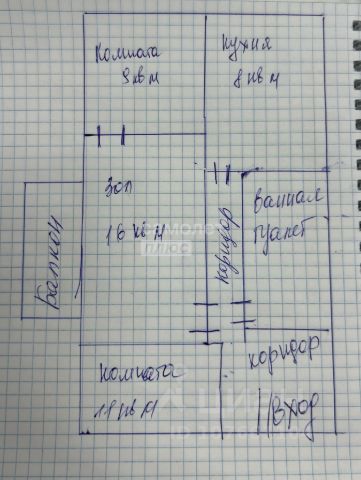 Комната
9 кв м
Кухня
8 кв м
Зал
16 кв м
Балкон
Коридор
Ванная
туалет
Комната
11 кв м
Коридор
Вход